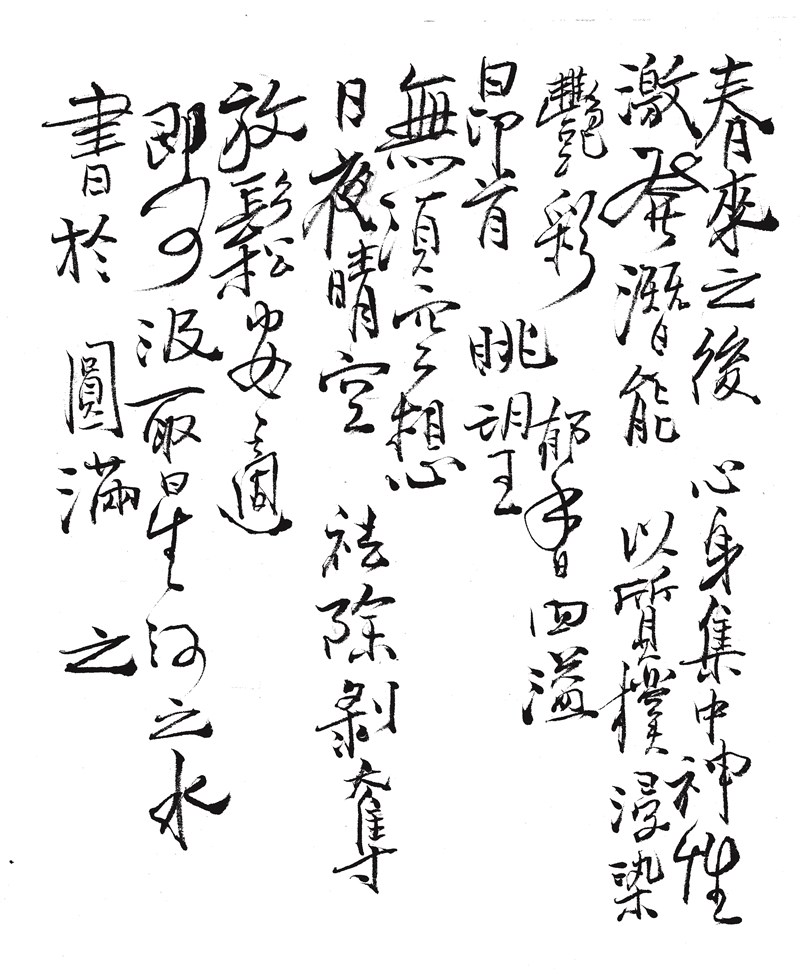 春來之後 心身集中神性
激發潛能 以質樸浸染
豔彩 郁香四溢
昂首 眺望
無須空想
日夜晴空 祛除剝奪
放鬆安適
即可汲取星河之水
書於 圓滿 之